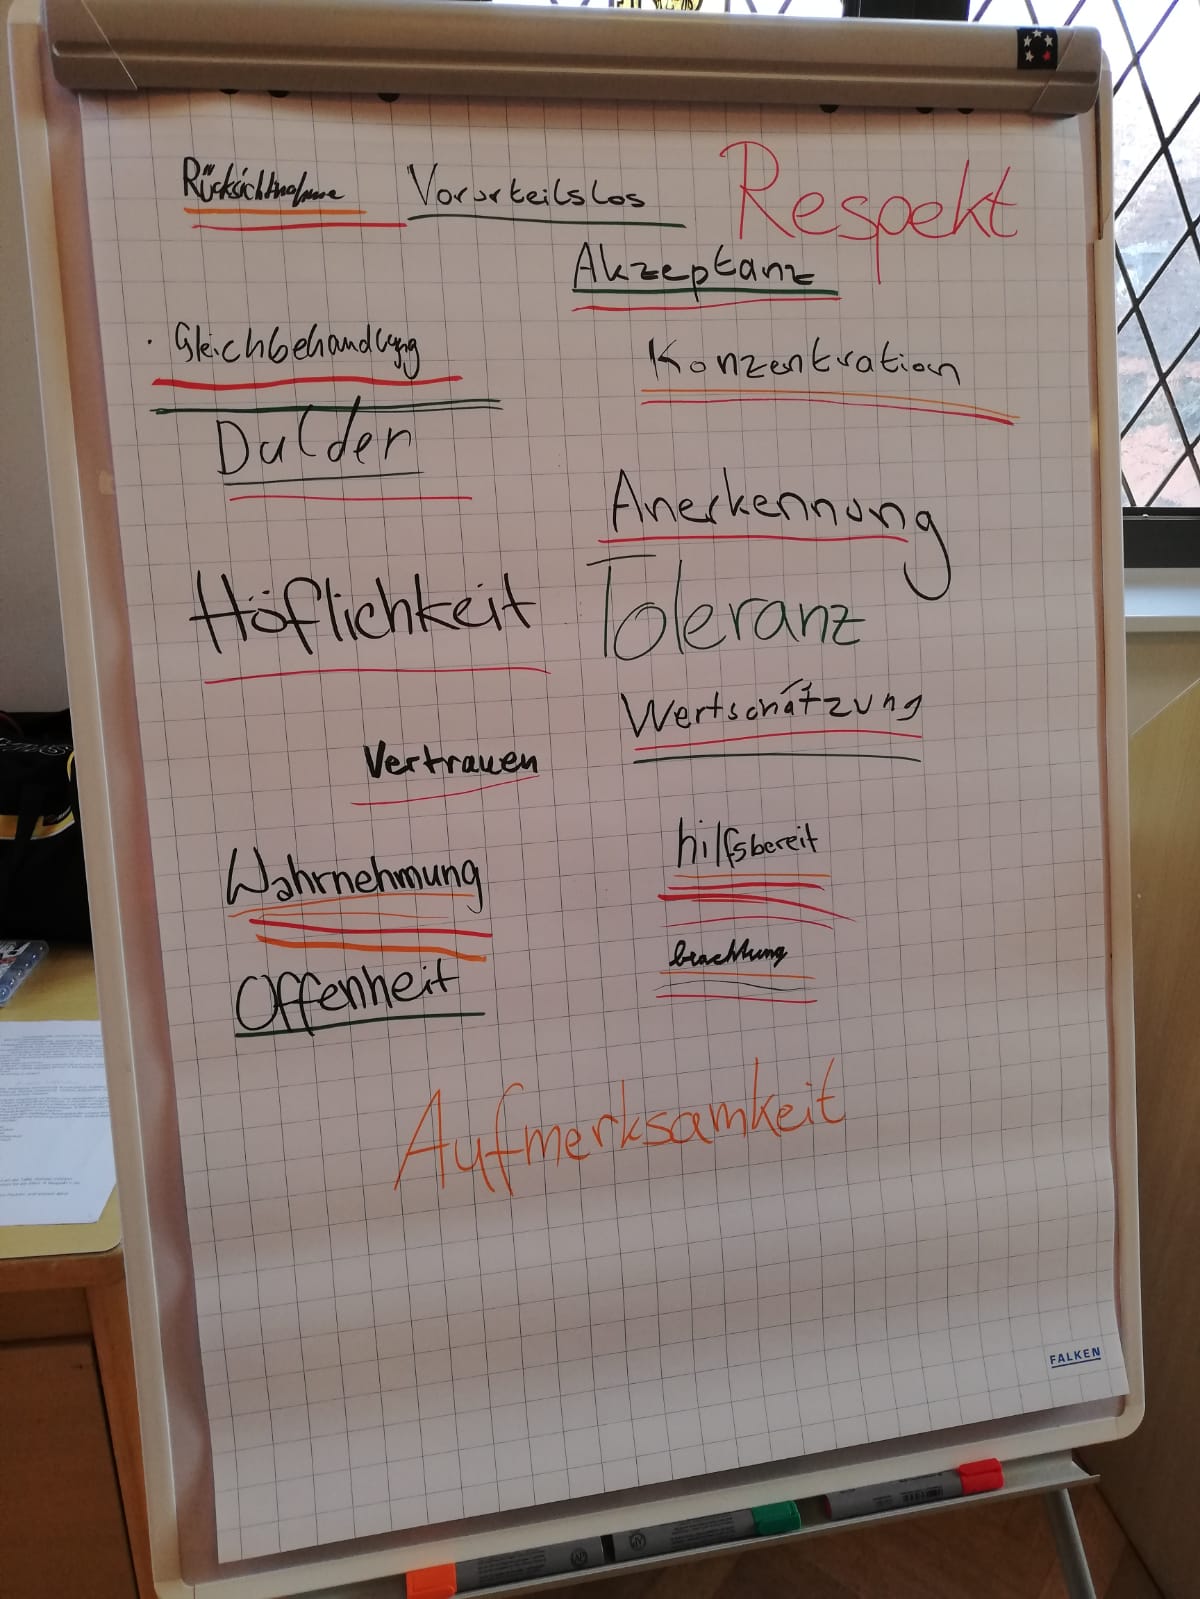 Rücksichtnahme Vorurteilslos Respekt
Akzeptanz
· Gleichbehandlung
Konzentration
Dulden
Anerkennung
Höflichkeit
Toleranz
Wertschätzung
Vertrauen
hilfsbereit
Wahrnehmung
beachtung
Offenheit
Aufmerksamkeit
FALKEN